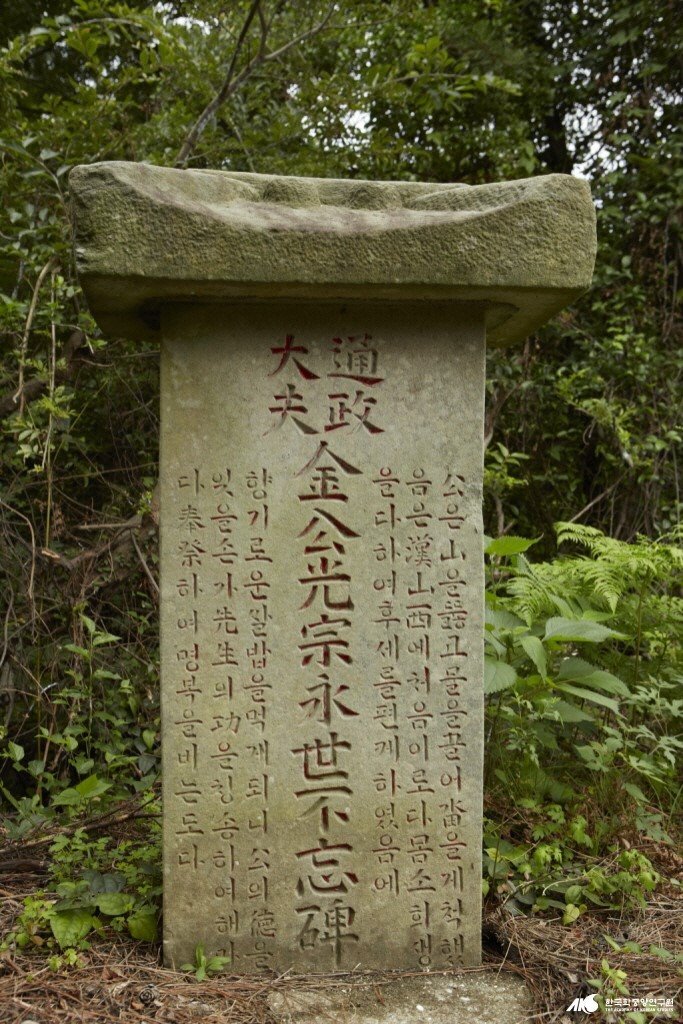 公은山을뚫고물을끌어畓을게척했
음은漢山西에처음이로다몸소희생
을다하여후세를편케하였음에
通政
大夫
金公光宗永世不忘碑
향기로운쌀밥을먹게되니公의德을
잇을손가先生의功을칭송하여해마
다奉祭하여명복을비는도다
한국학중앙연구원
THE ACADEMY OF KOREAN STUDIES